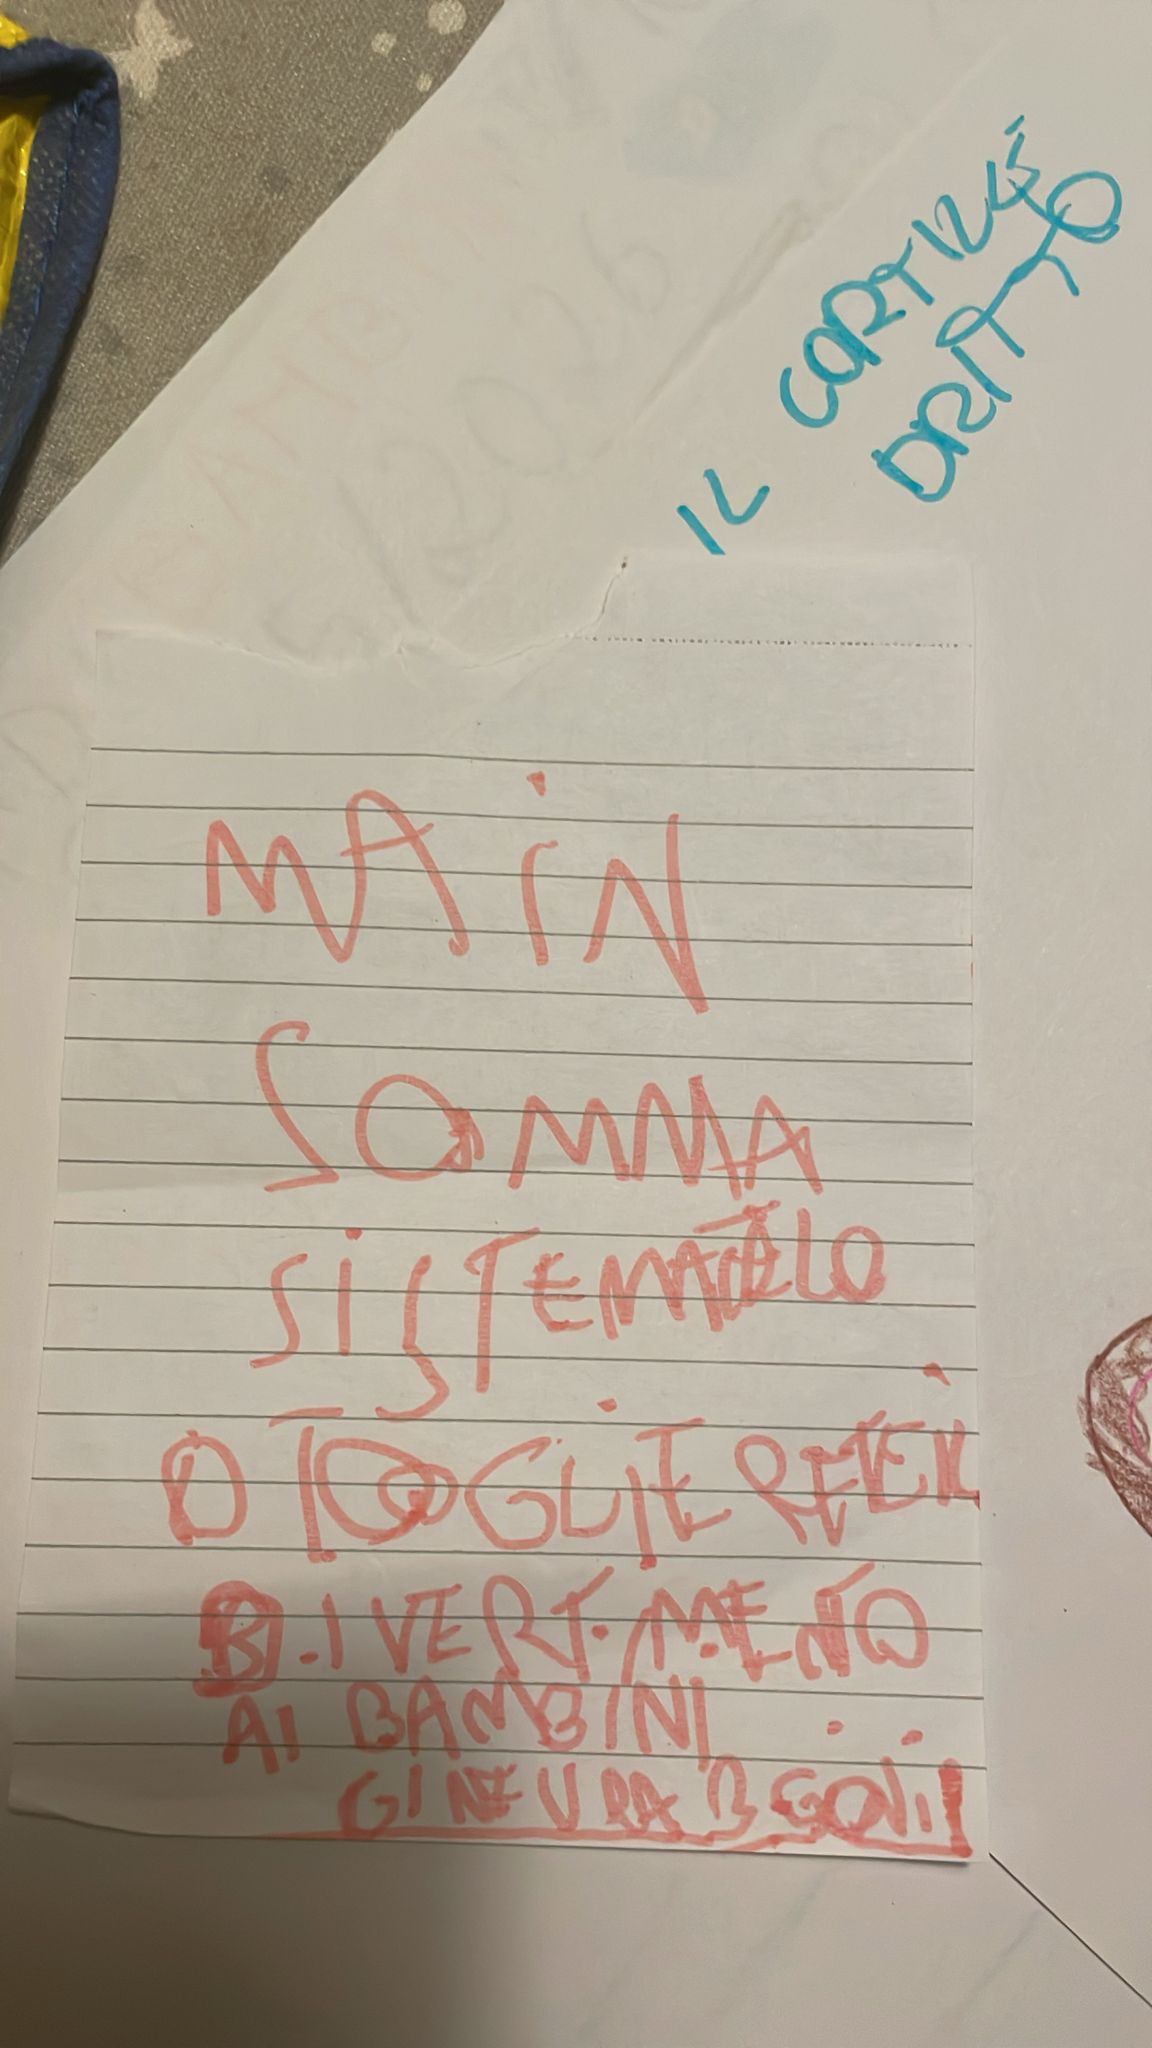 IL CORTILE
DRITTO
MAiN
SOMMA
SiSTEMATELO
O TOGLIERETE IL
DIVERTIMENTO
AI BAMBINI
GINEVRA B